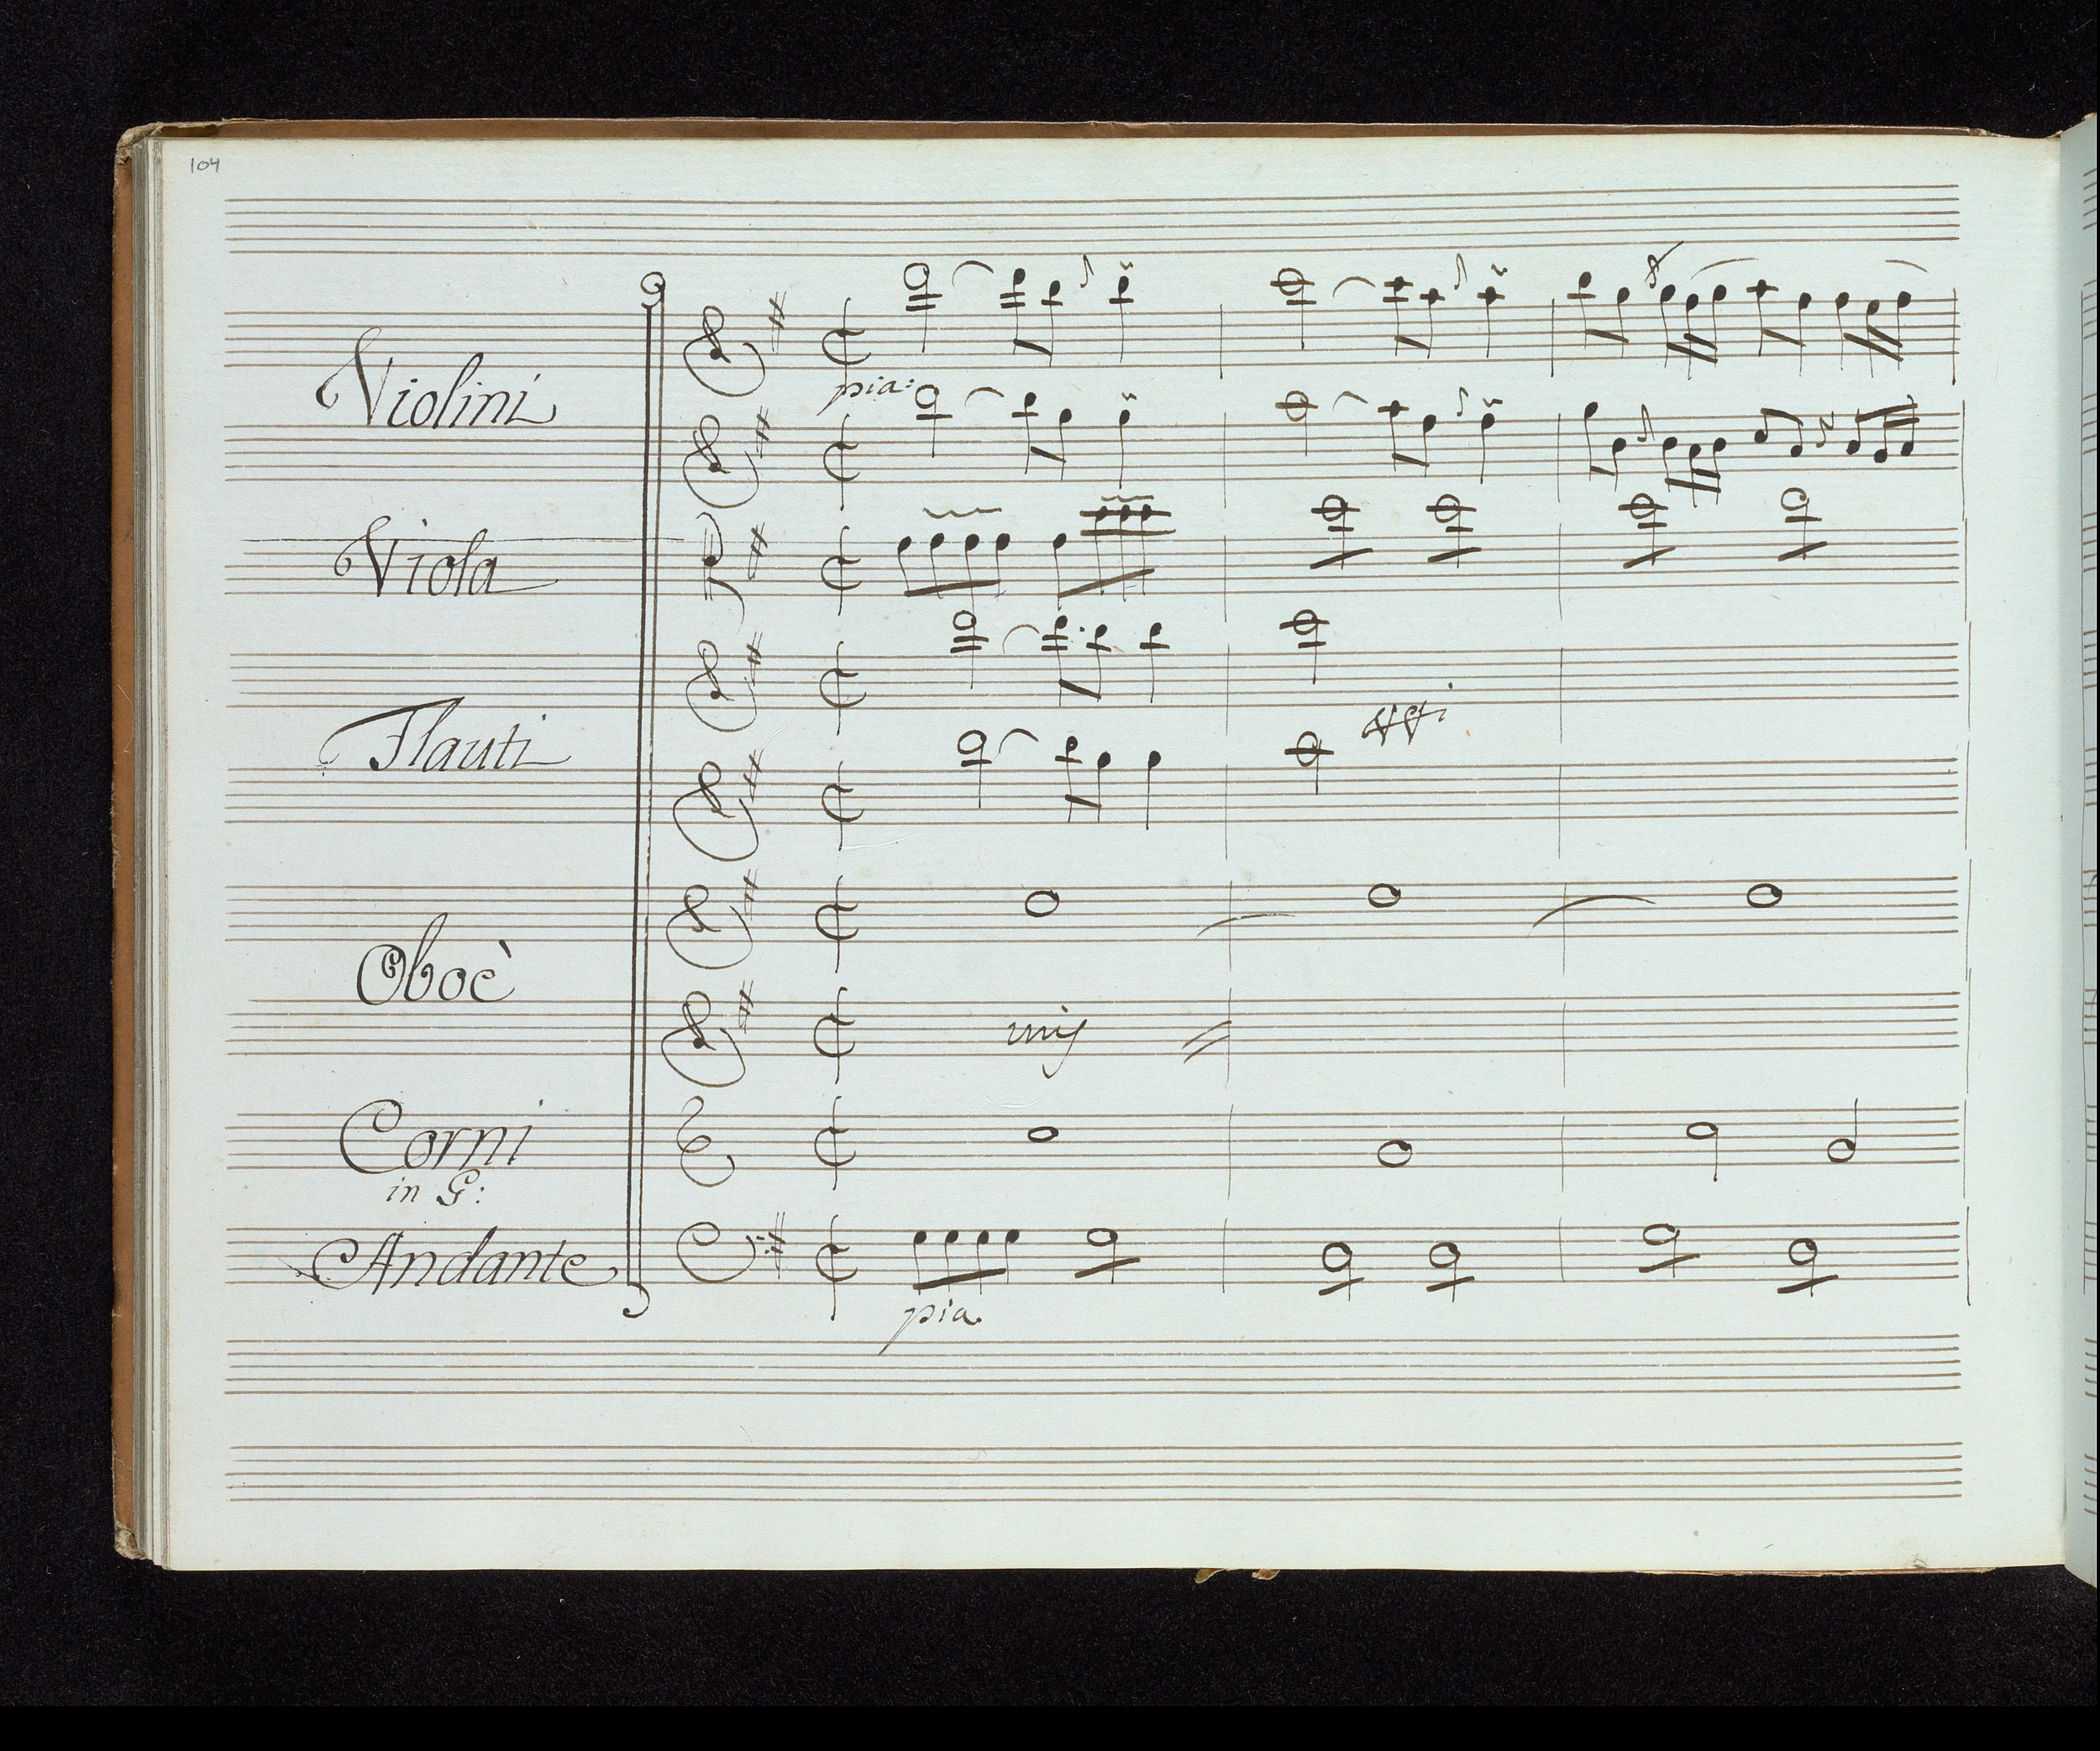 104
Violini
pia:
Viola
Flauti
Oboè
unis
Corni
in G:
Andante
pia.